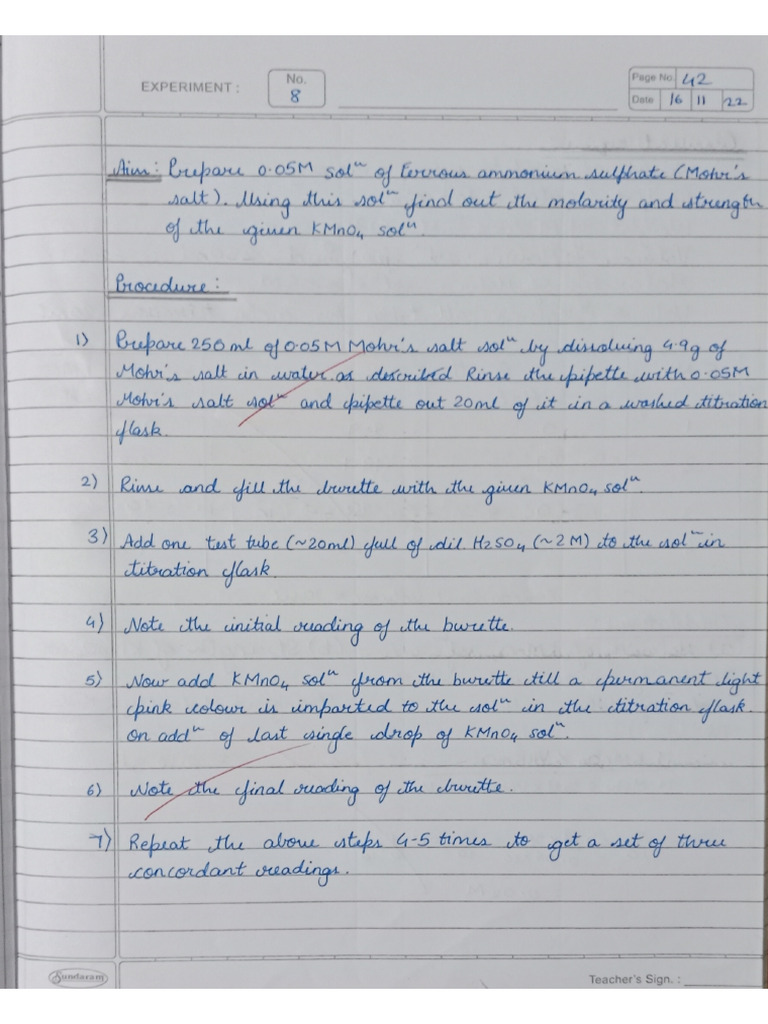 EXPERIMENT :
No.
8
Page No. 42
Date 16 11 22
Aim: Prepare 0.05M solⁿ of ferrous ammonium sulphate (Mohr's
salt). Using this solⁿ find out the molarity and strength
of the given KMnO₄ solⁿ.
Procedure:
1) Prepare 250 ml of 0.05M Mohr's salt solⁿ by dissolving 4.9g of
Mohr's salt in water as described Rinse the pipette with 0.05M
Mohr's salt solⁿ and pipette out 20ml of it in a washed titration
flask.
2) Rinse and fill the burette with the given KMnO₄ solⁿ.
3) Add one test tube (~20ml) full of dil. H₂SO₄ (~2M) to the solⁿ in
titration flask.
4) Note the initial reading of the burette.
5) Now add KMnO₄ solⁿ from the burette till a permanent light
pink colour is imparted to the solⁿ in the titration flask.
on addⁿ of last single drop of KMnO₄ solⁿ.
6) Note the final reading of the burette.
7) Repeat the above steps 4-5 times to get a set of three
concordant readings.
Sundaram
Teacher's Sign. :